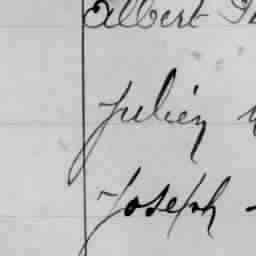 Albert
Julien
Joseph